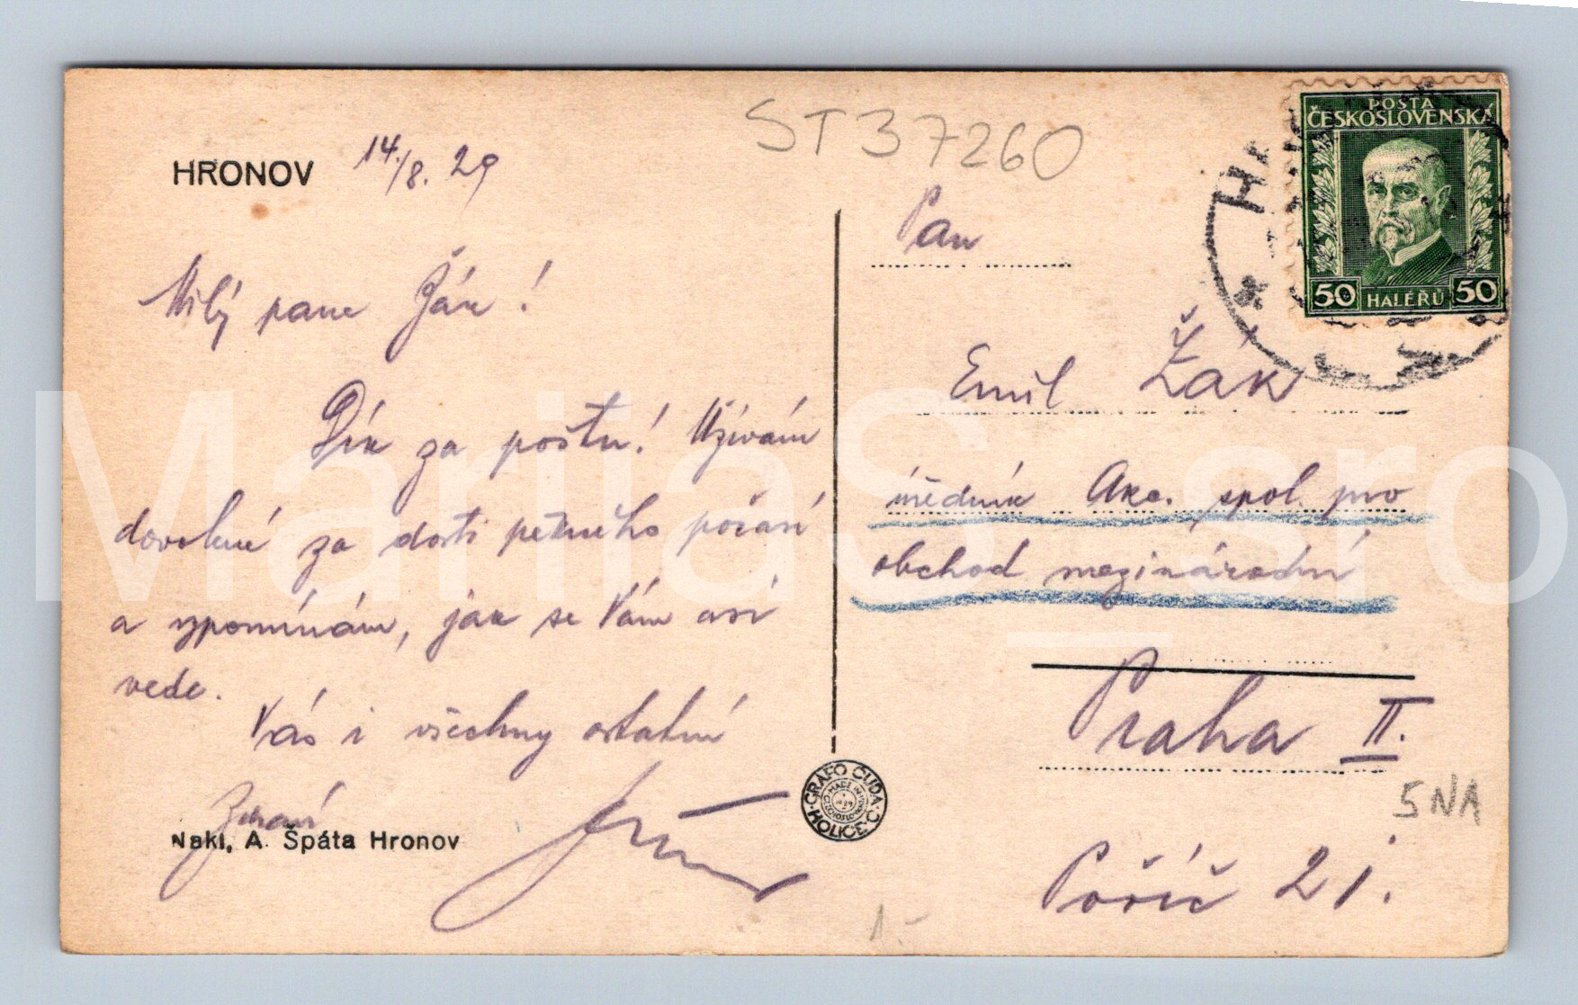 HRONOV 14./8. 29
Milý pane Žák!
Dík za poštu! Užívám
dovolené za dosti pěkného počasí
a vzpomínám, jak se Vám asi
vede.
Vás i všechny ostatní
zdraví
Nakl. A. Špáta Hronov
GRAFO ČUDA HOLICE
ST37260
POSTA
ČESKOSLOVENSKÁ
50 HALÉŘŮ 50
Pan
Emil Žák
úředník Akc. spol. pro
obchod mezinárodní
Praha II.
5NA
Poříč 21.
1-
MarijaS_sro